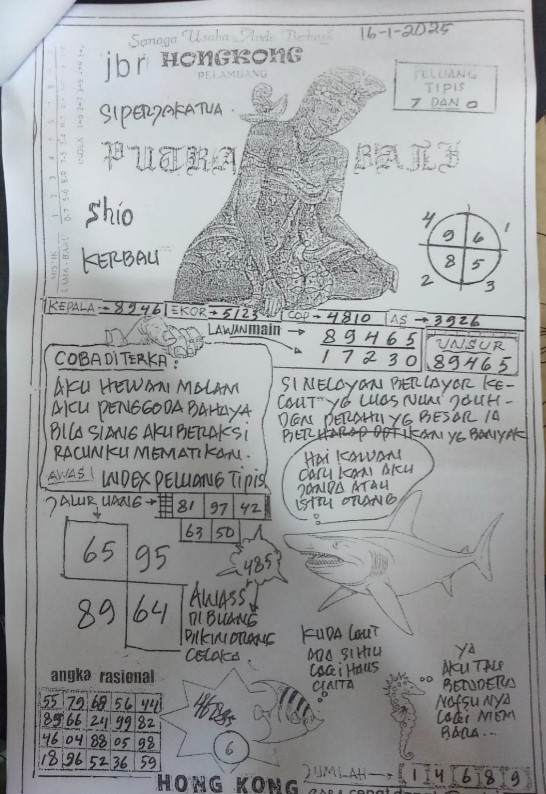 Semoga Usaha Anda Berhasil
16-1-2025
jbr HONGKONG
PELAMBANG
PELUANG
TIPIS
7 DAN 0
SIPERJAKATUA.
PUTRA BALI
Shio
KERBAU
4 9 6 1
2 8 5 3
KEPALA → 8946 EKOR → 5123 COP → 4810 AS → 3926
LAWANmain → 89465
17230
UNSUR
89465
COBA DITERKA:
AKU HEWAN MALAM
AKU PENGGODA BAHAYA
BILA SIANG AKU BERAKSI
RACUNKU MEMATIKAN.
AWAS! INDEX PELUANG TIPIS
SI NELAYAN BERLAYAR KE-
LAUT YG LUAS NUN JAUH-
DEN PERAHU YG BESAR IA
BERHARAP DPT IKAN YG BANYAK
HAI KAWAN
CARI KAN AKU
JANDA ATAU
ISTRI ORANG
JALUR UANG → 81 97 42
63 50
65 95
89 64
485
AWASS
DI BUANG
PIKIN ORANG
CELAKA.
KUDA LAUT
ADA SI HIU
LAGI HAUS
CINTA
YA
AKU TAU
BENDERA
NAFSU NYA
LAGI MEM
BARA...
angka rasional
55 79 68 56 44
89 66 24 99 82
46 04 88 05 98
18 96 52 36 59
6
JUMLAH → 1 4 6 8 9
HONG KONG